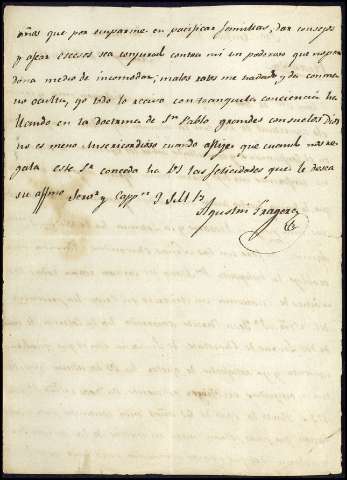 años que por ocuparme en pacificar familias, dar consejos
y afear excesos sea conjurado contra mi un poderoso que no per
dona medio de incomodar; malos ratos me ha dado, y da con ma
no oculta, yo todo lo recivo con tranquila conciencia ha
llando en la doctrina de Sn. Pablo grandes consuelos. Dios
no es menos misericordioso cuando aflige que cuando nos re
gala este Sr. conceda ha los las felicidades que le desea
su affmo Servr. y Cappn. Q. S. M. B.
Agustin Fragero